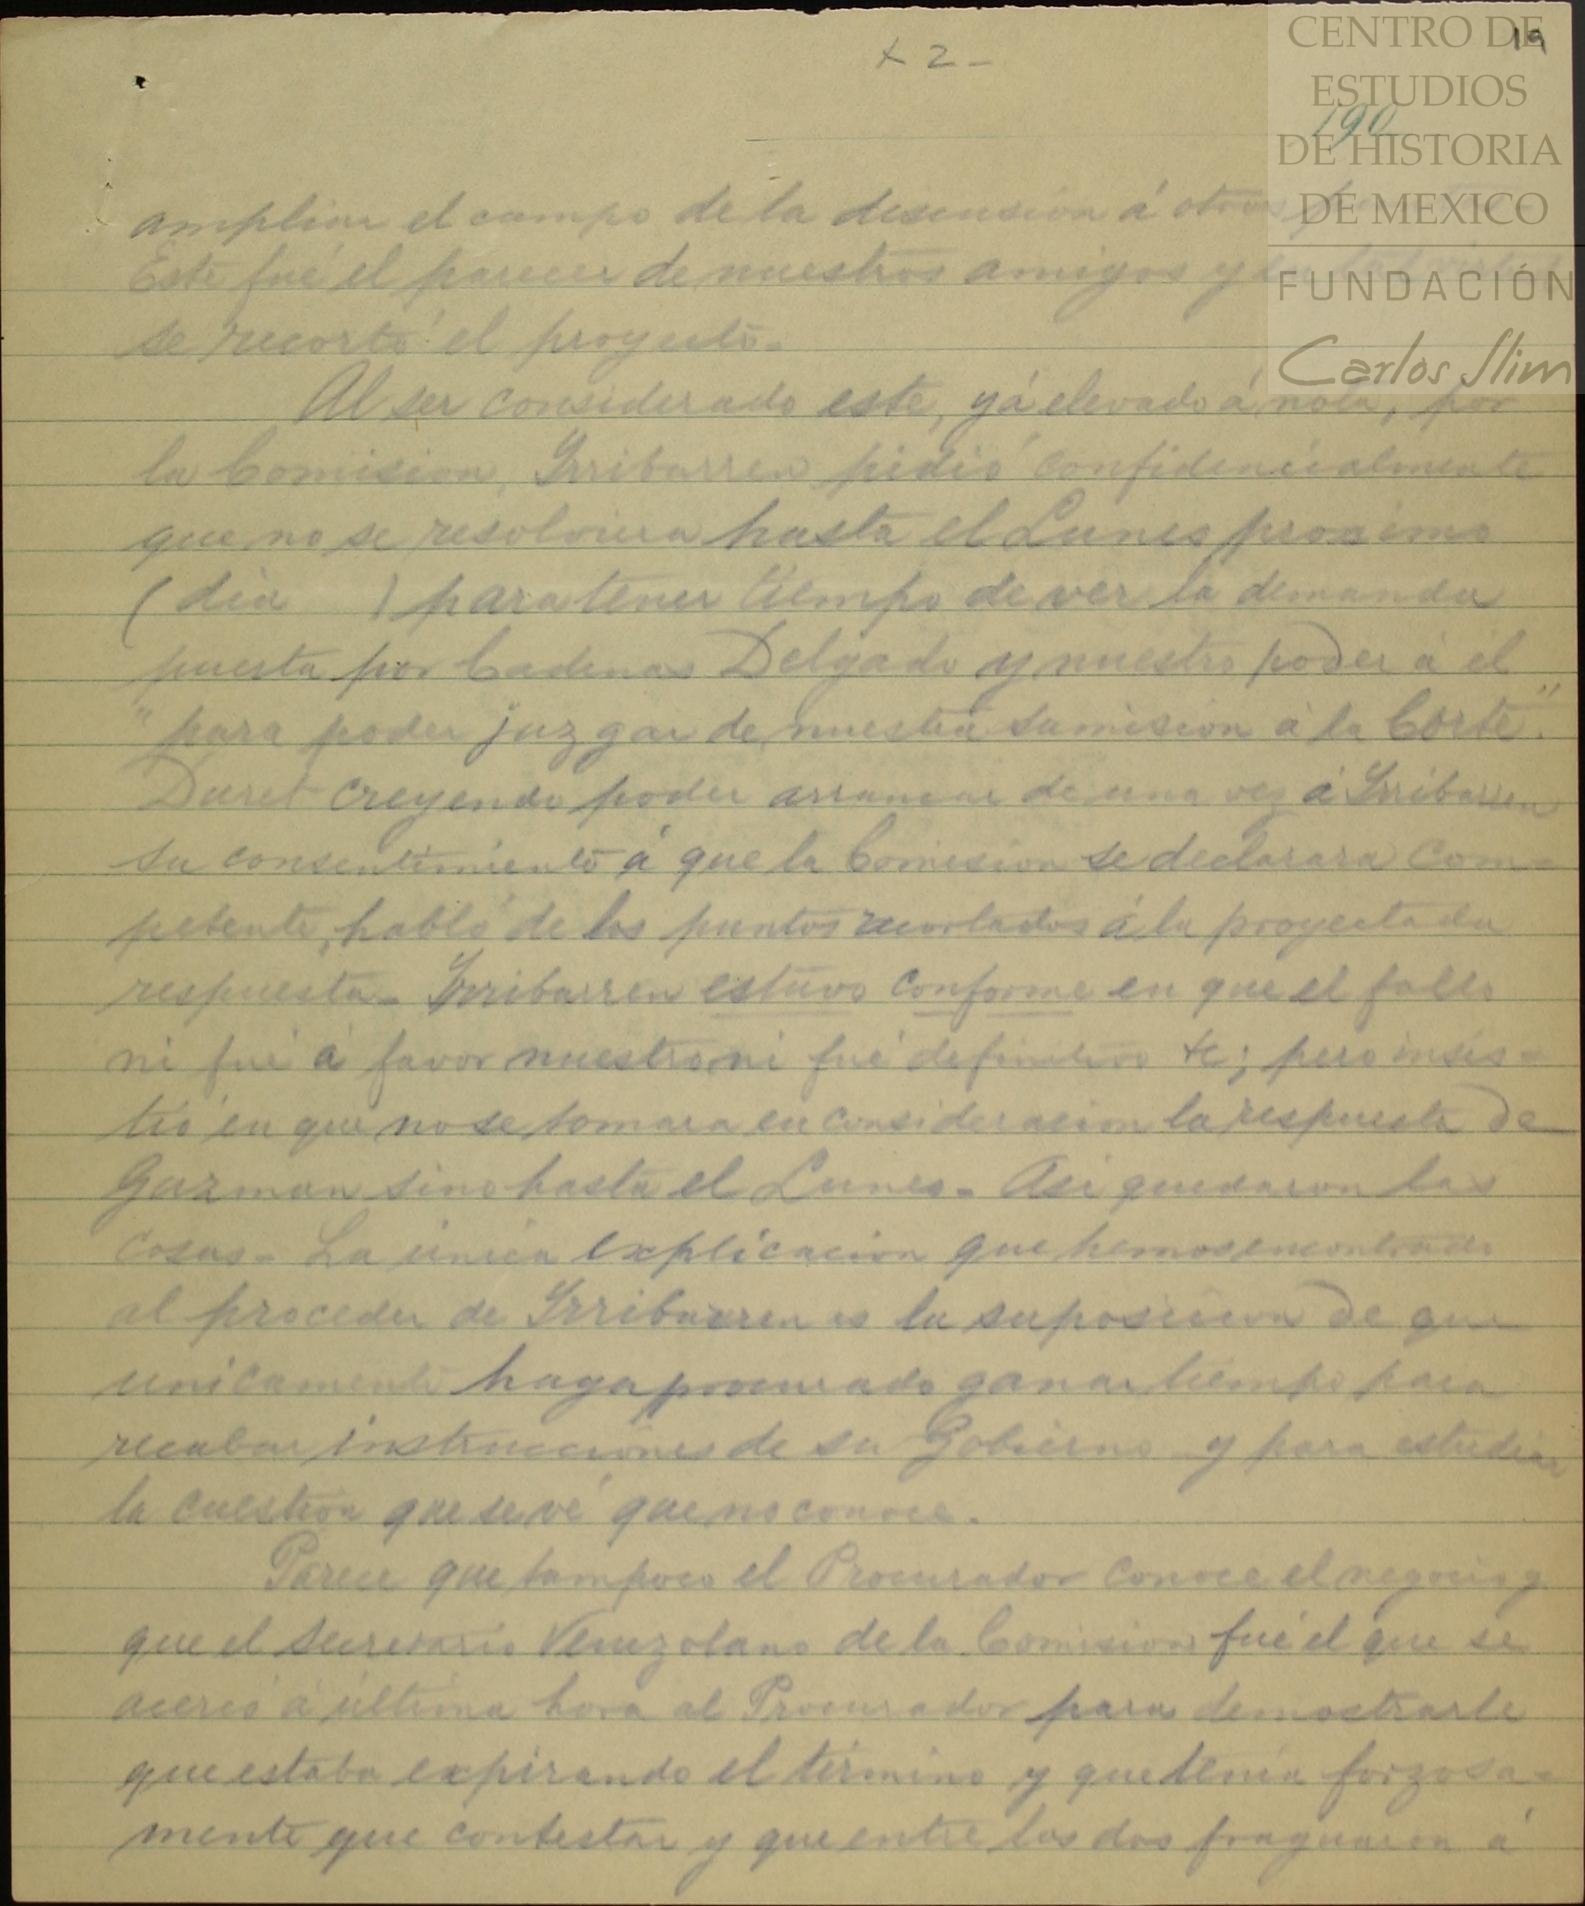 + 2 -
19
190
CENTRO DE
ESTUDIOS
DE HISTORIA
DE MEXICO
FUNDACIÓN
Carlos Slim
ampliar el campo de la discusion á otros
Este fué el parecer de nuestros amigos y
se recortó el proyecto.
Al ser considerado este, yá elevado á nota, por
la Comision, Yrribarren pidió confidencialmente
que no se resolviera hasta el Lunes proximo
(dia ) para tener tiempo de ver la demanda
puesta por Cadenas Delgado y nuestro poder á él
"para poder juzgar de nuestra sumision á la Corte".
Duret creyendo poder arrancar de una vez á Yrribarren
su consentimiento á que la Comision se declarara com-
petente, habló de los puntos recortados á la proyectada
respuesta. Yrribarren estuvo conforme en que el fallo
ni fué á favor nuestro ni fué definitivo &c; pero insis-
tió en que no se tomara en consideracion la respuesta de
Guzman sino hasta el Lunes. Asi quedaron las
cosas. La única explicacion que hemos encontrado
al proceder de Yrribarren es la suposicion de que
unicamente haya procurado ganar tiempo para
recabar instrucciones de su Gobierno y para estudiar
la cuestion que se vé que no conoce.
Parece que tampoco el Procurador conoce el negocio y
que el Secretario Venezolano de la Comision fué el que se
acercó á última hora al Procurador para demostrarle
que estaba expirando el término y que tenia forzosa-
mente que contestar y que entre los dos fraguaron á